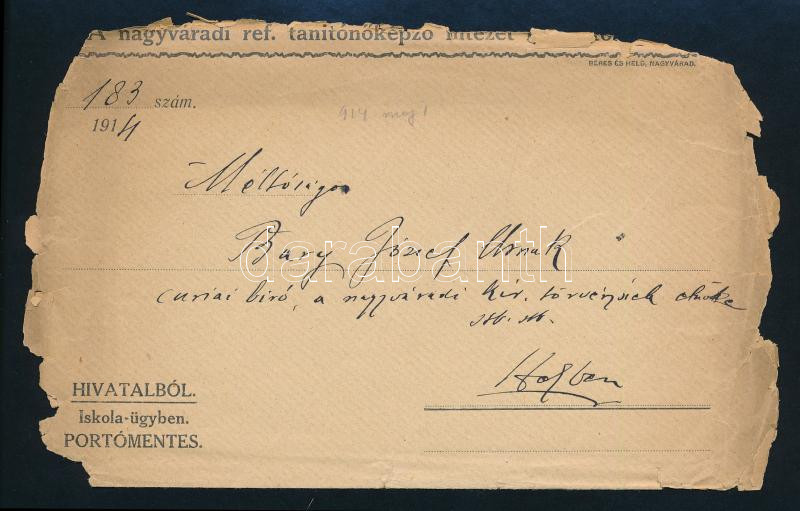 A nagyváradi ref. tanítónőképző intézet
BERES ÉS HELD, NAGYVÁRAD.
183 szám.
1914
914 maj
Méltóságos
Bary József Úrnak
curiai biró, a nagyváradi kir. törvényszék elnöke
stb. stb.
Helyben
HIVATALBÓL.
Iskola-ügyben.
PORTÓMENTES.
darabanth